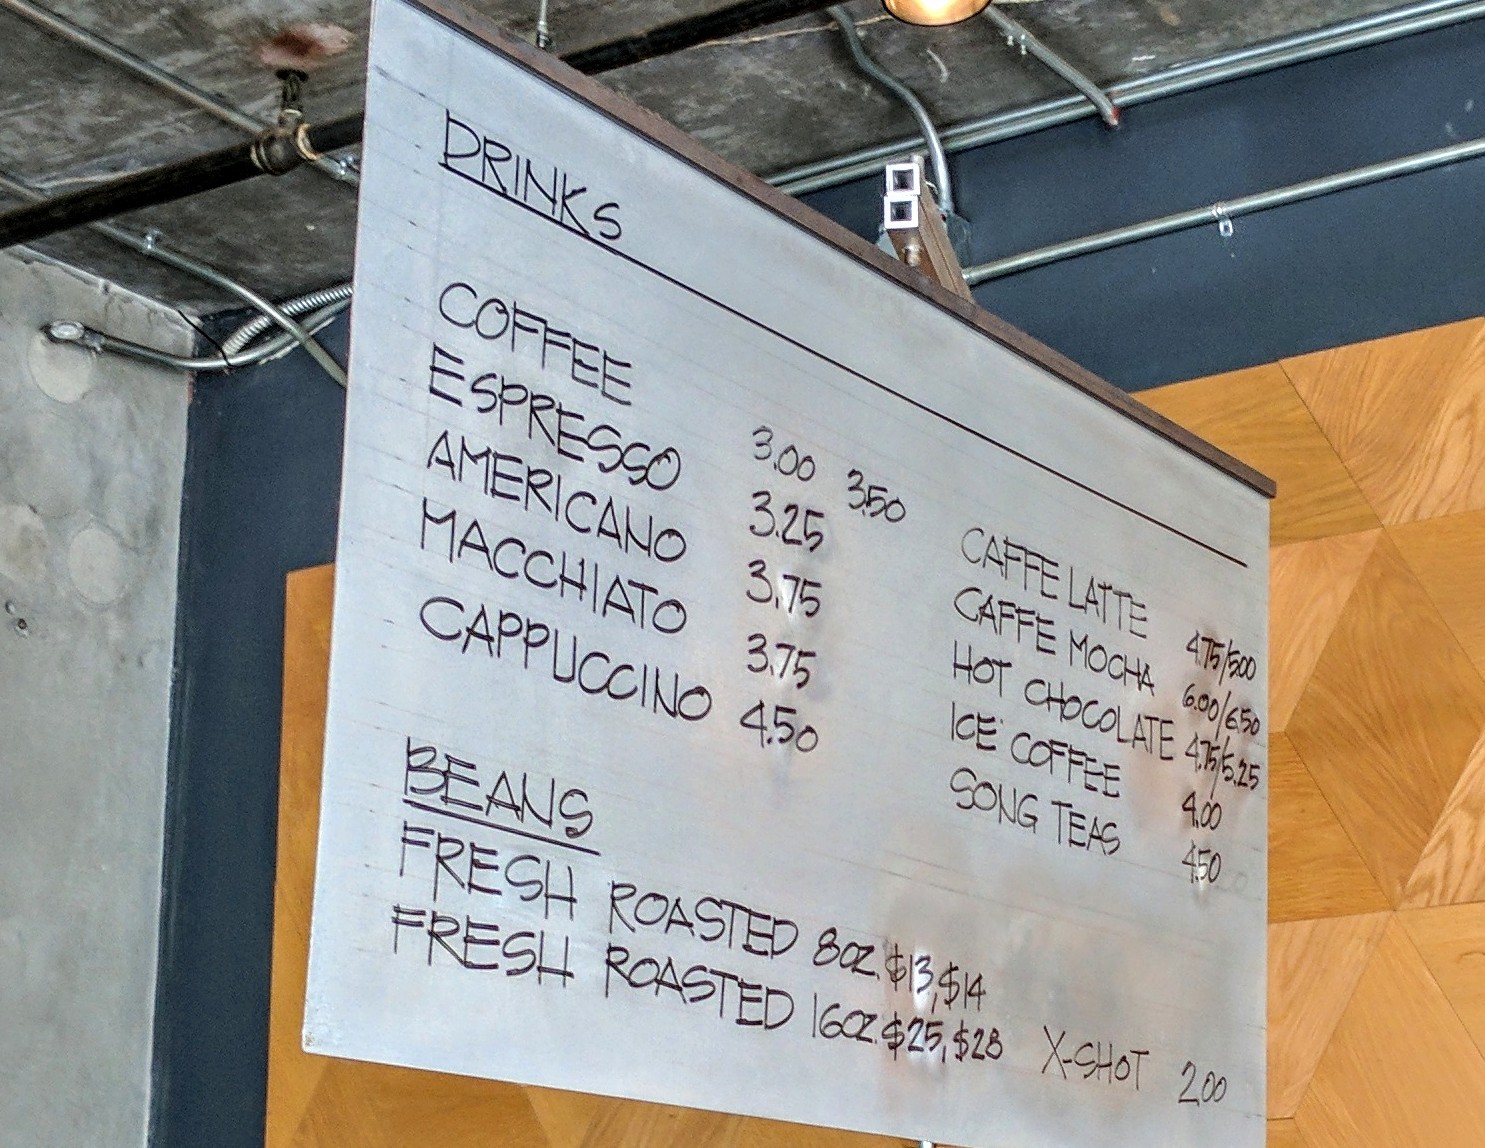 DRINKS
COFFEE 3.00 3.50
ESPRESSO 3.25
AMERICANO 3.75
MACCHIATO 3.75
CAPPUCCINO 4.50
CAFFE LATTE 4.75/5.00
CAFFE MOCHA 6.00/6.50
HOT CHOCOLATE 4.75/5.25
ICE COFFEE 4.00
SONG TEAS 4.50
BEANS
FRESH ROASTED 8OZ. $13, $14
FRESH ROASTED 16OZ. $25, $28
X-SHOT 2.00